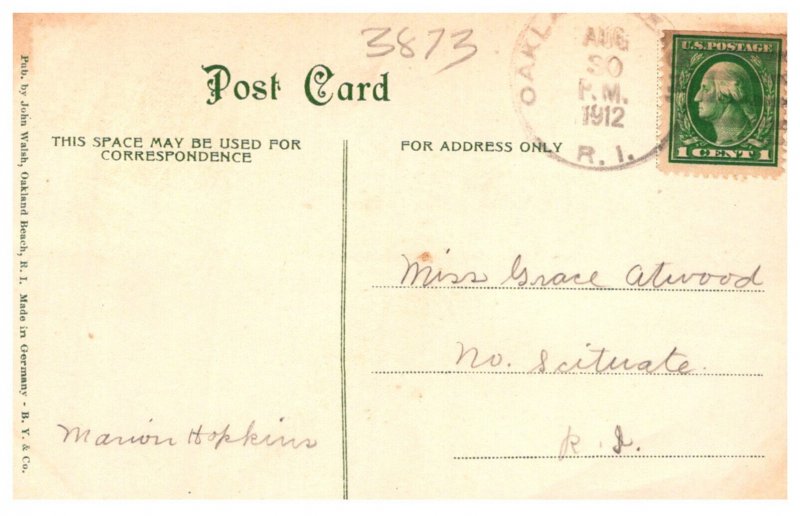 3873
Post Card
OAKLA
AUG
30
P.M.
1912
R. I.
U.S. POSTAGE
1 CENT 1
THIS SPACE MAY BE USED FOR
CORRESPONDENCE
FOR ADDRESS ONLY
Pub. by John Walsh, Oakland Beach, R. I. Made in Germany - B. Y. & Co.
Miss Grace Atwood
No. Scituate
R. I.
Marion Hopkins